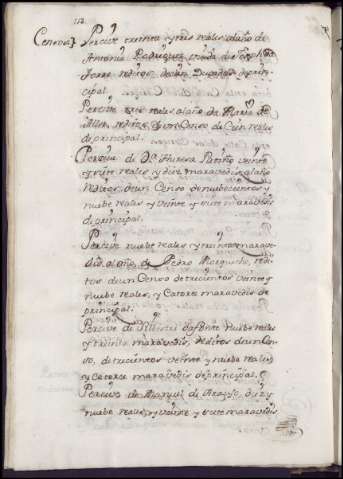 Percive treinta y tres reales al año de
Antonia Rodriguez viuda de Joseph
reditos de un
cipal.
Percive tres reales al año de Maria de
reditos de un Censo de Cien reales
de principal.
Percive de Dª Teresa Patiño veinte
y siete reales y diez maravedis al año
reditos de un Censo de nuebecientos y
nuebe reales y veinte y siete maravedis
de principal.
Percive nuebe reales y treinta marave
dis al año de Pedro redi
tos de un Censo de trecientos veinte y
nuebe reales, y Catorce maravedis de
principal.
Percive de nuebe reales
y treinta maravedis, reditos de un Cen
so, de trecientos veinte y nuebe reales
y Catorce maravedis de principal.
Percive de Manuel de Araujo, diez y
nuebe reales, y veinte y siete maravedis